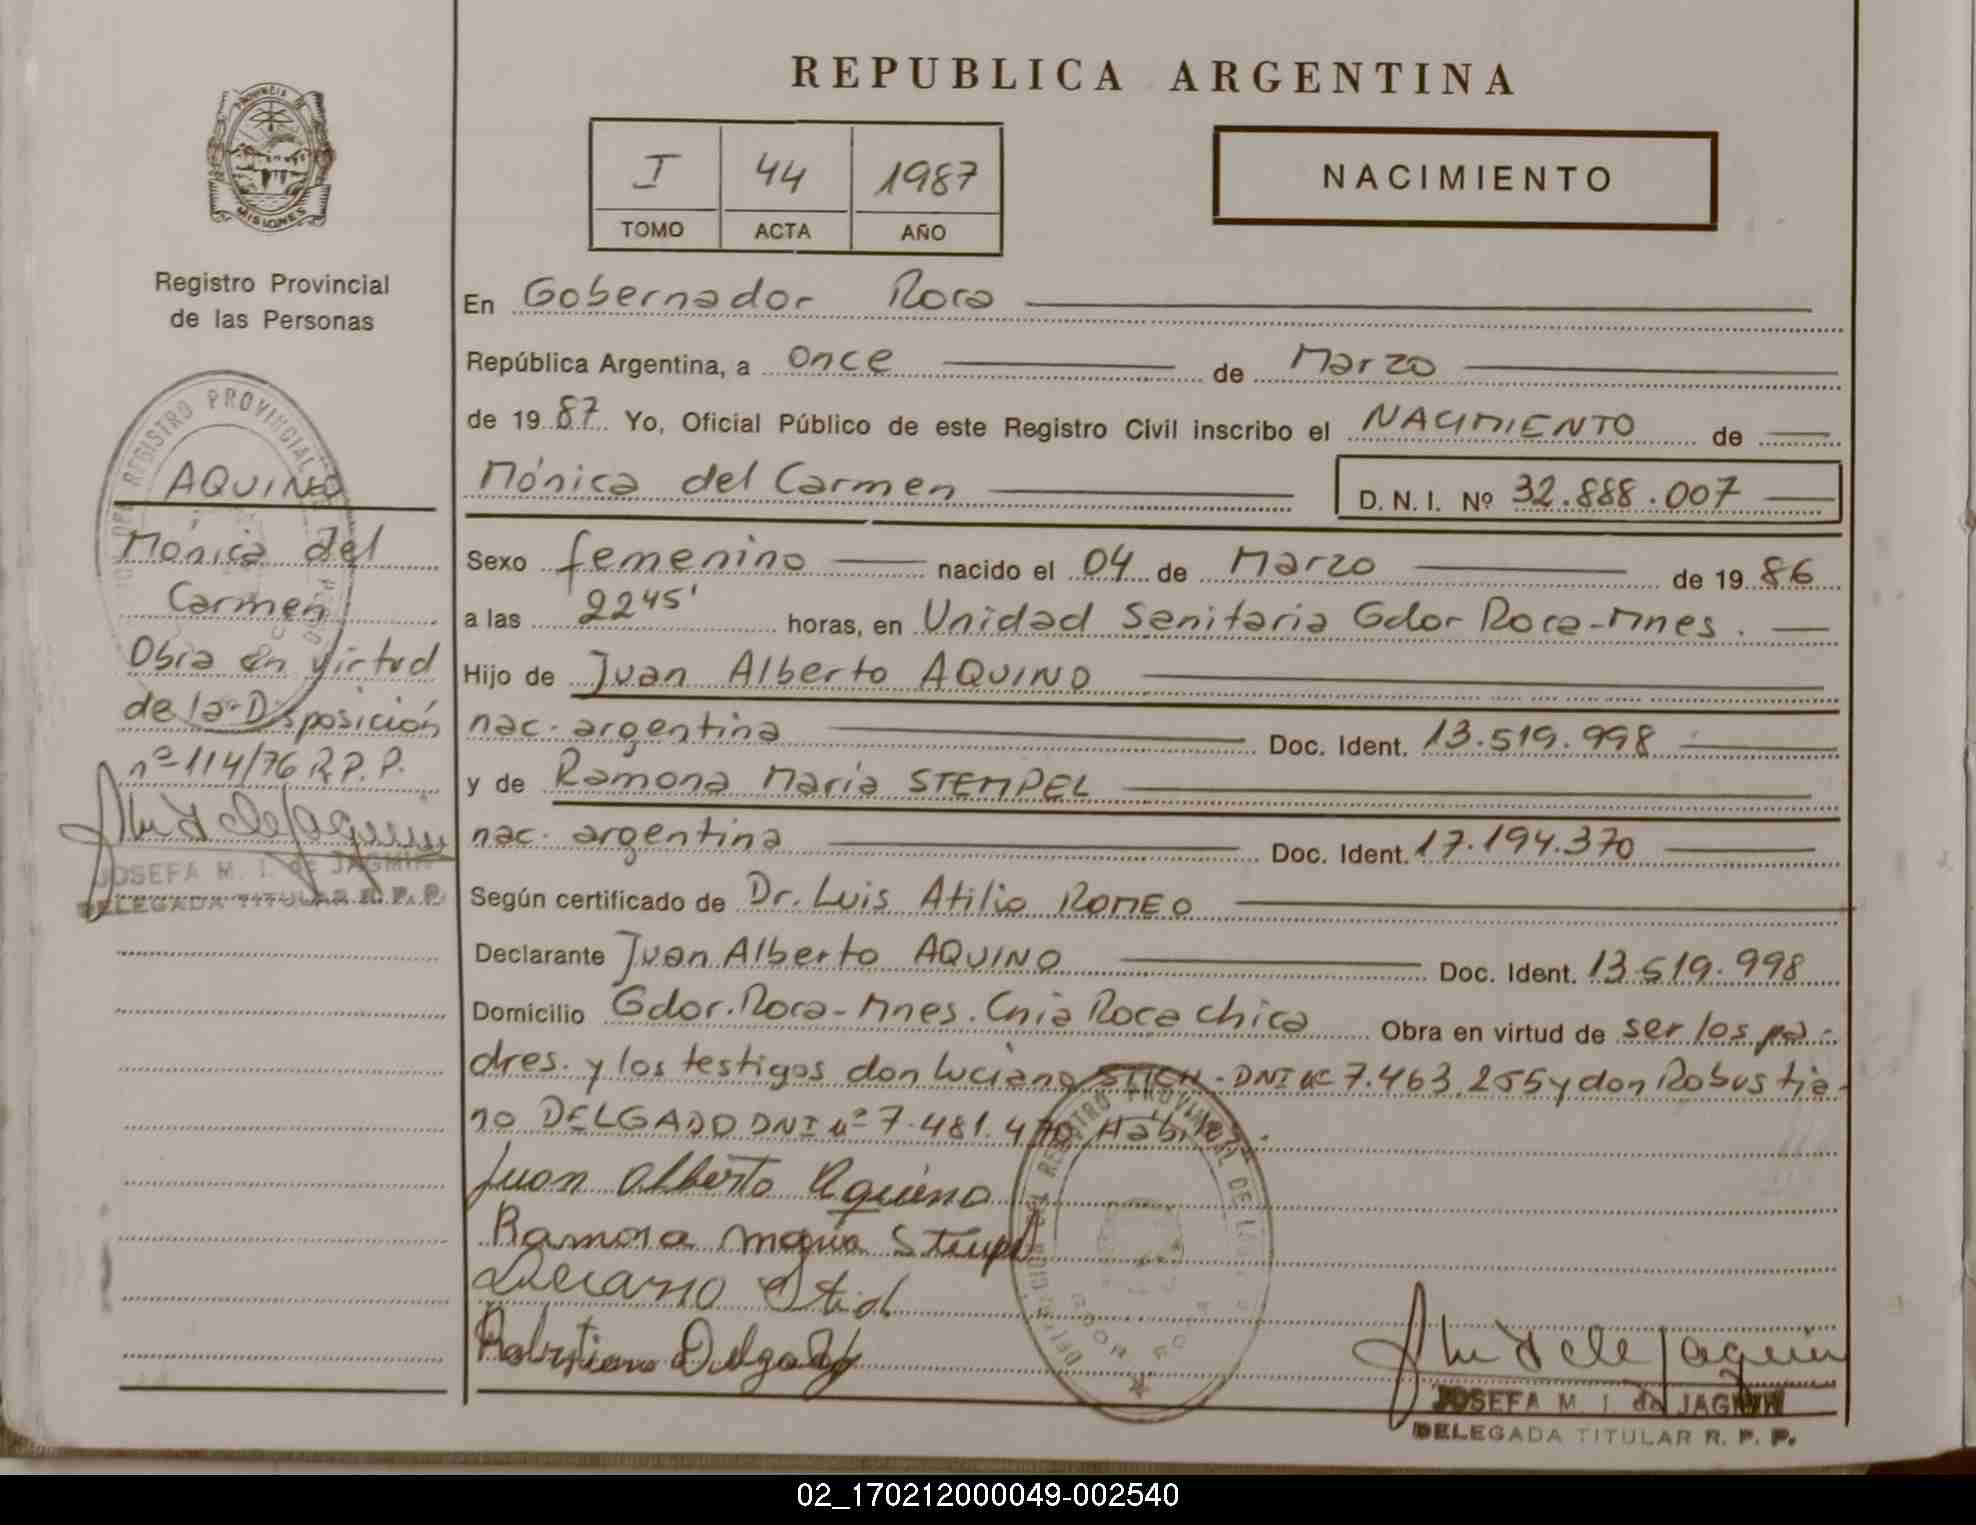 PROVINCIA DE
MISIONES
Registro Provincial
de las Personas
REGISTRO PROVINCIAL
AQUINO
Mónica del
Carmen
Obra en virtud
de la Disposición
nº 114/76 R.P.P.
JOSEFA M. I. de JAGMIN
DELEGADA TITULAR R. P. P.
REPUBLICA ARGENTINA
I 44 1987
TOMO ACTA AÑO
NACIMIENTO
En Gobernador Roca
República Argentina, a once de Marzo
de 19 87 Yo, Oficial Público de este Registro Civil inscribo el NACIMIENTO de
Mónica del Carmen D. N. I. Nº 32.888.007
Sexo femenino nacido el 04 de Marzo de 19 86
a las 22 45' horas, en Unidad Sanitaria Gdor Roca-Mnes.
Hijo de Juan Alberto AQUINO
nac. argentina Doc. Ident. 13.519.998
y de Ramona Maria STEMPEL
nac. argentina Doc. Ident. 17.194.370
Según certificado de Dr. Luis Atilio ROMEO
Declarante Juan Alberto AQUINO Doc. Ident. 13.519.998
Domicilio Gdor. Roca-Mnes. Cnia Roca chica Obra en virtud de ser los pa-
dres. y los testigos don Luciano - DNI nº 7.463.255 y don Robustia-
no DELGADO DNI nº 7.481. Hábiles.
Juan Alberto Aquino
Ramona Maria Stempel
Luciano
Robustiano Delgado
REGISTRO PROVINCIAL DE LAS
JOSEFA M. I. de JAGMIN
DELEGADA TITULAR R. P. P.
02_170212000049-002540